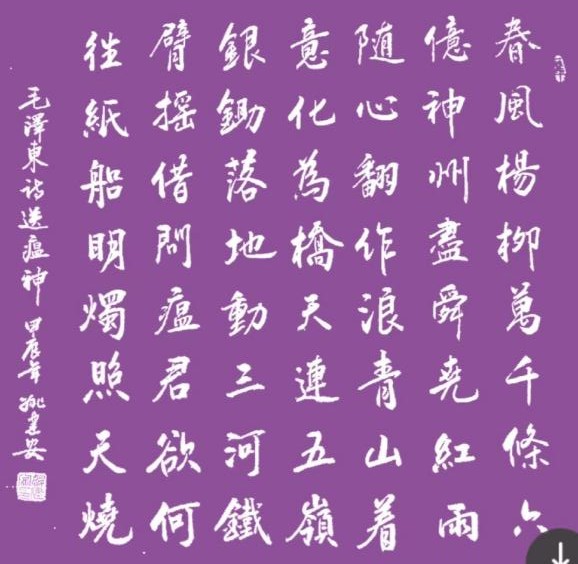 春風楊柳萬千條六
億神州盡舜堯紅雨
随心翻作浪青山着
意化為橋天連五嶺
銀鋤落地動三河鐵
臂摇借問瘟君欲何
往紙船明燭照天燒
毛澤東詩送瘟神 甲辰年 姚建安